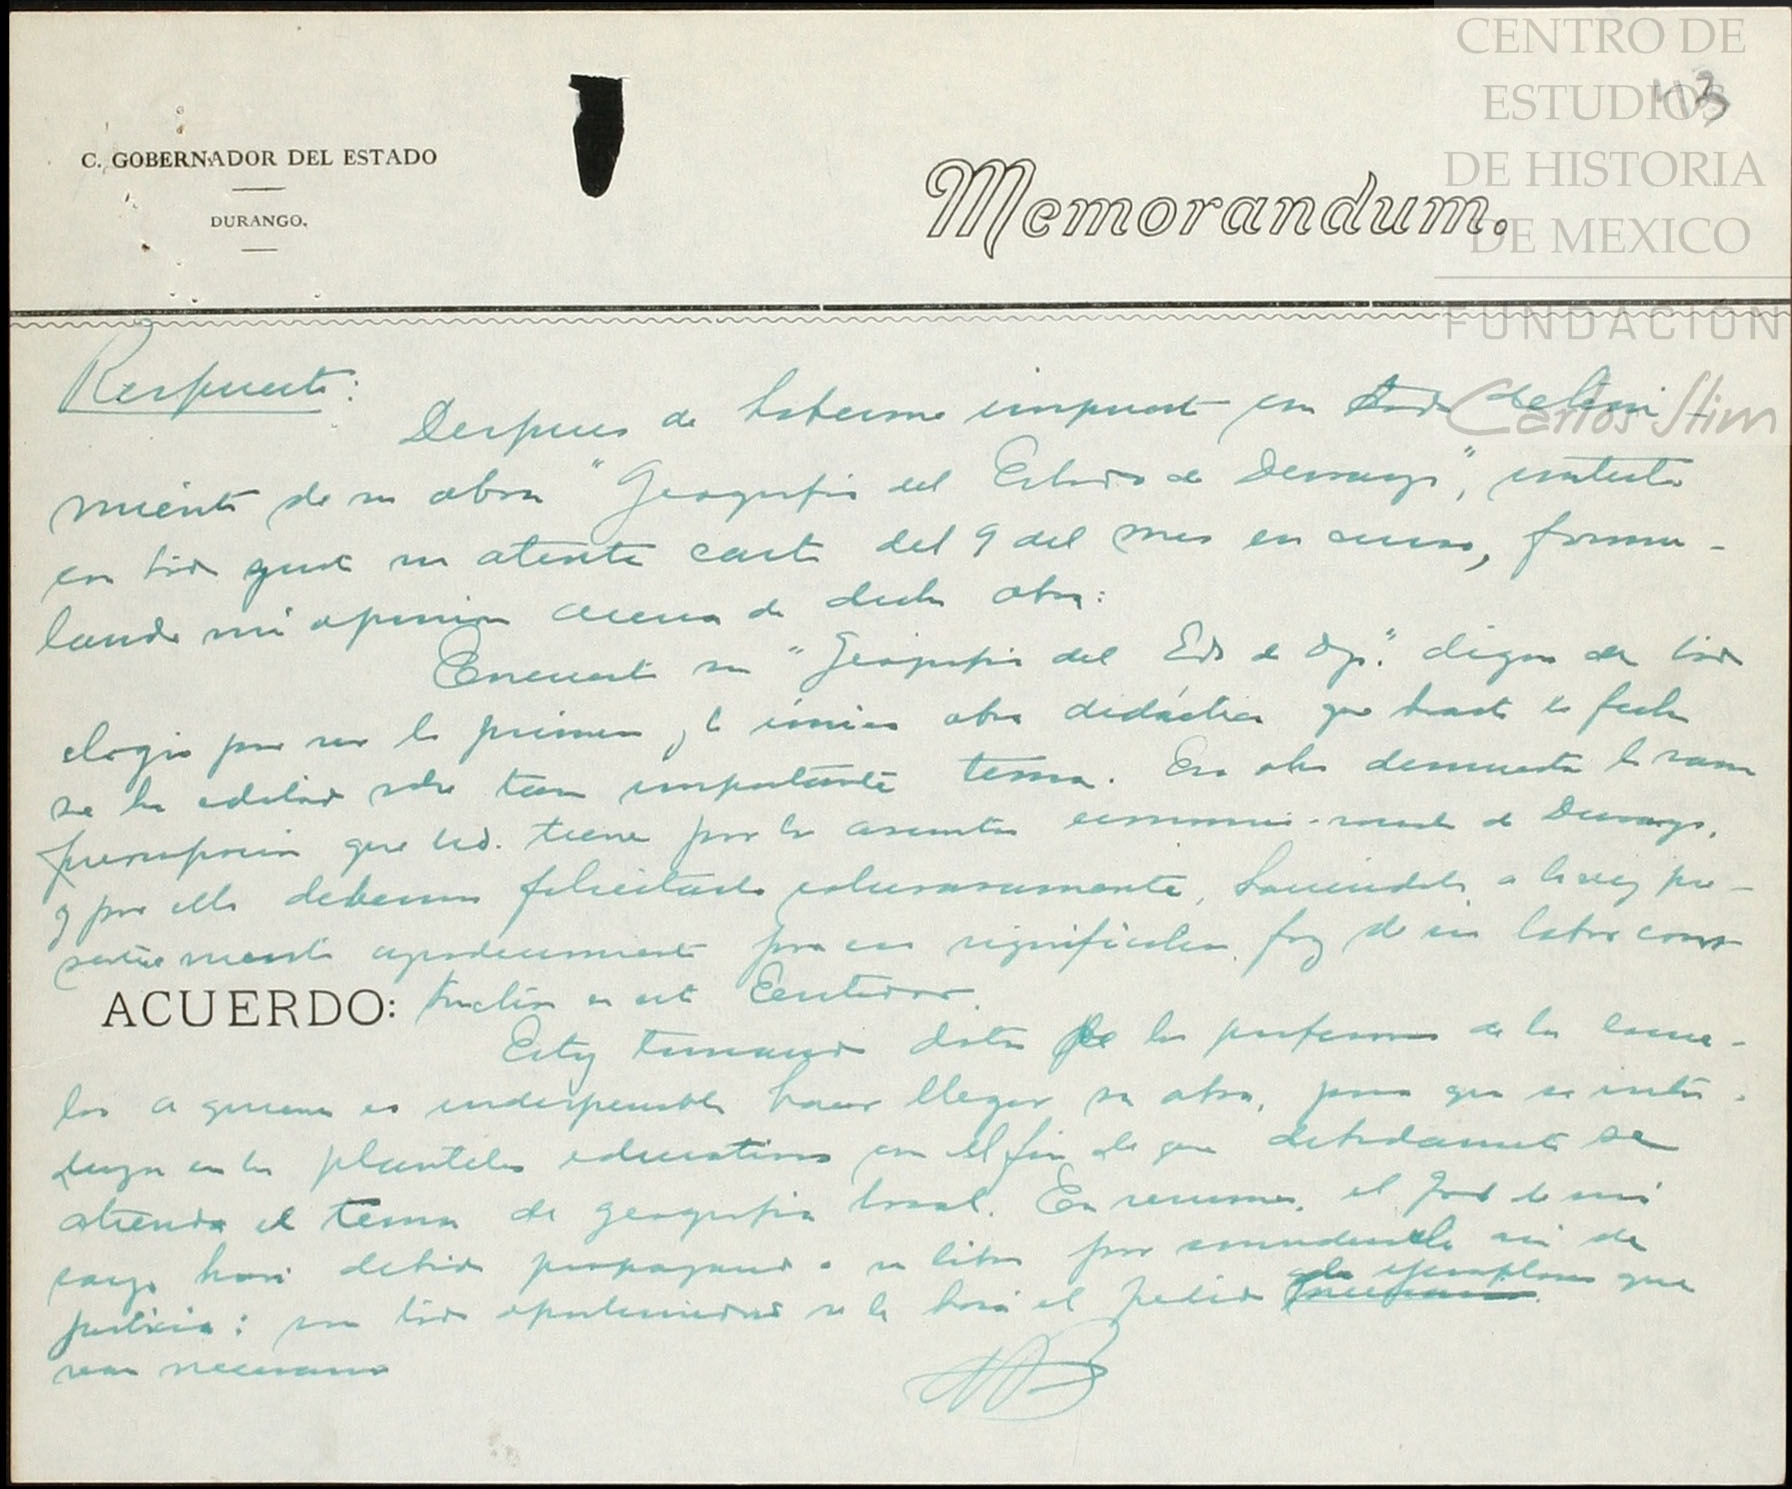 CENTRO DE
ESTUDIOS
DE HISTORIA
DE MEXICO
FUNDACION
Carlos Slim
C. GOBERNADOR DEL ESTADO
DURANGO.
Memorandum.
Respuesta:
Despues de haberme impuesto con todo deteni-
miento de su obra "Geografia del Estado de Durango", contesto
con todo gusto su atenta carta del 9 del mes en curso, formu-
lando mi opinion acerca de dicha obra:
Encuentro su "Geografia del Edo de Dgo." digna de todo
elogio por ser la primera y la única obra didáctica que hasta la fecha
se ha editado sobre tan importante tema. Esa obra demuestra la sana
preocupacion que Ud. tiene por los asuntos economico-sociales de Durango,
y por ello debemos felicitarlo calurosamente, haciendole a la vez pre-
sente nuestro agradecimiento por esa significativa faz de su labor cons-
ACUERDO: tructiva en esta Entidad.
Estoy tomando datos de los profesores de las escue-
las a quienes es indispensable hacer llegar su obra, para que se intro-
duzca en los planteles educativos con el fin de que debidamente se
atienda el tema de geografia local. En resumen, el Gob de mi
cargo hará debida propaganda a su libro por considerarlo asi de
justicia: con toda oportunidad se le hará el pedido de ejemplares que
sean necesarios